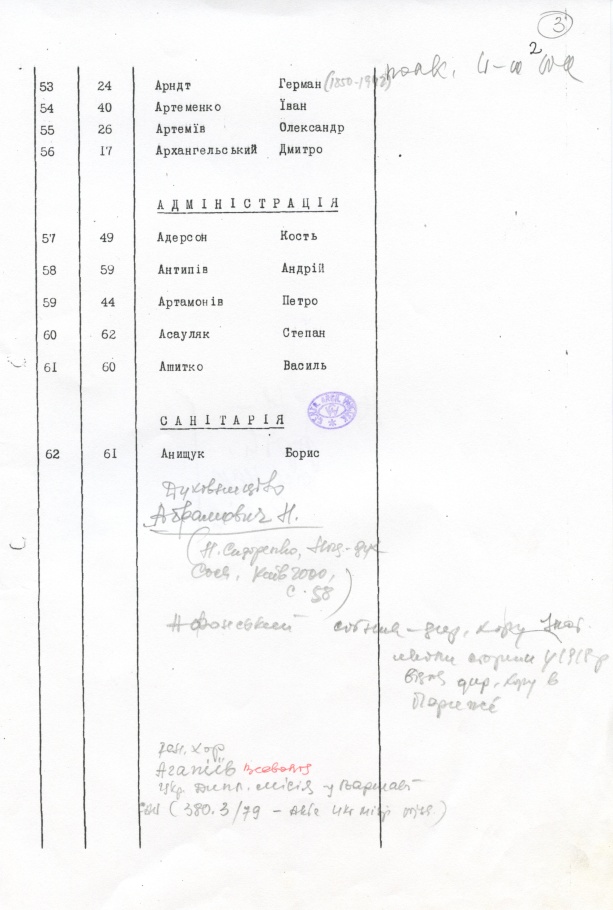 3
2
53 24 Арндт Герман
54 40 Артеменко Їван
55 26 Артемїв Олександр
56 17 Архангельський Дмитро
АДМІНІСТРАЦІЯ
57 49 Адерсон Кость
58 59 Антипів Андрій
59 44 Артамонів Петро
60 62 Асауляк Степан
61 60 Ашитко Василь
САНІТАРІЯ
62 61 Анищук Борис
Духовництво
Абрамович Н.
(Н. Сидоренко,
Київ 2000,
с. 58)
Афонський сотник - дир. хору
у 1918 р
дир. хору в
Парижі
хор
Агапіїв Всеволод
Укр. дипл. місія у Варшаві
(380.3/79 -